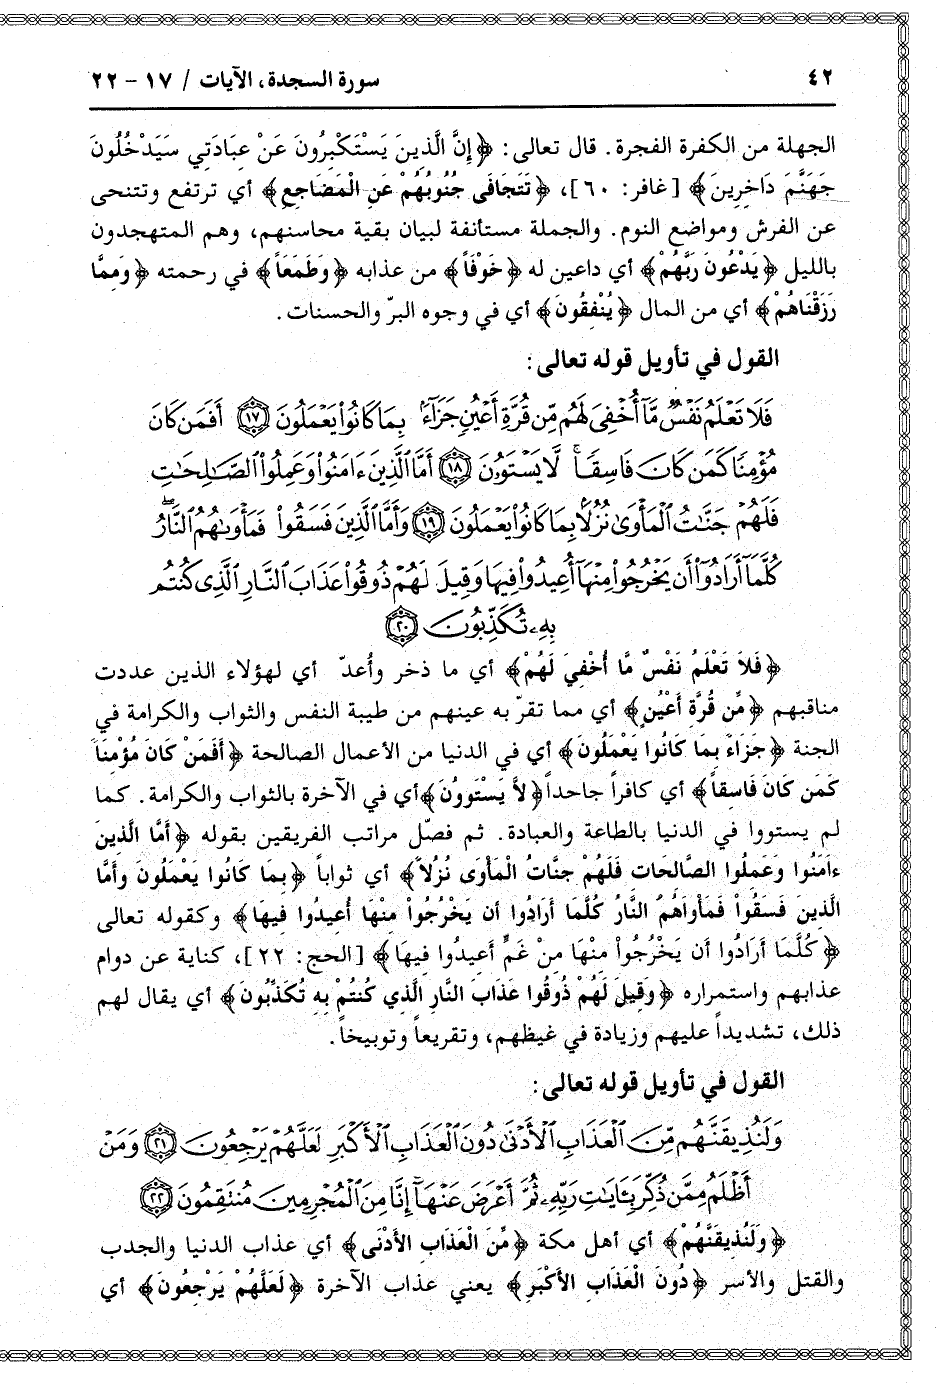 ٤٢ سورة السجدة، الآيات / ١٧ - ٢٢
الجهلة من الكفرة الفجرة. قال تعالى: ﴿إِنَّ الَّذِينَ يَسْتَكْبِرُونَ عَنْ عِبَادَتِي سَيَدْخُلُونَ
جَهَنَّمَ دَاخِرِينَ﴾ [غافر: ٦٠]، ﴿تَتَجَافَى جُنُوبُهُمْ عَنِ الْمَضَاجِعِ﴾ أي ترتفع وتتنحى
عن الفرش ومواضع النوم. والجملة مستأنفة لبيان بقية محاسنهم، وهم المتهجدون
بالليل ﴿يَدْعُونَ رَبَّهُمْ﴾ أي داعين له ﴿خَوْفَاً﴾ من عذابه ﴿وَطَمَعَاً﴾ في رحمته ﴿وَمِمَّا
رَزَقْنَاهُمْ﴾ أي من المال ﴿يُنْفِقُونَ﴾ أي في وجوه البرّ والحسنات.
القول في تأويل قوله تعالى:
فَلَا تَعْلَمُ نَفْسٌ مَّآ أُخْفِىَ لَهُم مِّن قُرَّةِ أَعْيُنٍ جَزَآءًۢ بِمَا كَانُوا۟ يَعْمَلُونَ ١٧ أَفَمَن كَانَ
مُؤْمِنًا كَمَن كَانَ فَاسِقًا ۚ لَّا يَسْتَوُۥنَ ١٨ أَمَّا الَّذِينَ ءَامَنُوا۟ وَعَمِلُوا۟ ٱلصَّـٰلِحَـٰتِ
فَلَهُمْ جَنَّـٰتُ ٱلْمَأْوَىٰ نُزُلًۢا بِمَا كَانُوا۟ يَعْمَلُونَ ١٩ وَأَمَّا ٱلَّذِينَ فَسَقُوا۟ فَمَأْوَىٰهُمُ ٱلنَّارُ ۖ
كُلَّمَآ أَرَادُوٓا۟ أَن يَخْرُجُوا۟ مِنْهَآ أُعِيدُوا۟ فِيهَا وَقِيلَ لَهُمْ ذُوقُوا۟ عَذَابَ ٱلنَّارِ ٱلَّذِى كُنتُم
بِهِۦ تُكَذِّبُونَ ٢٠
﴿فَلاَ تَعْلَمُ نَفْسٌ مَّا أُخْفِيَ لَهُمْ﴾ أي ما ذخر وأُعدّ أي لهؤلاء الذين عددت
مناقبهم ﴿مِّن قُرَّةِ أَعْيُنٍ﴾ أي مما تقرّ به عينهم من طيبة النفس والثواب والكرامة في
الجنة ﴿جَزَاءً بِمَا كَانُوا يَعْمَلُونَ﴾ أي في الدنيا من الأعمال الصالحة ﴿أَفَمَنْ كَانَ مُؤْمِنَاً
كَمَن كَانَ فَاسِقاً﴾ أي كافراً جاحداً ﴿لاَّ يَسْتَوونَ﴾ أي في الآخرة بالثواب والكرامة. كما
لم يستووا في الدنيا بالطاعة والعبادة. ثم فصّل مراتب الفريقين بقوله ﴿أَمَّا الَّذِينَ
ءامَنُوا وَعَمِلُوا الصَّالِحَات فَلَهُمْ جنَّاتُ الْمَأْوَى نُزُلاً﴾ أي ثواباً ﴿بِمَا كَانُوا يَعْمَلُونَ وأَمَّا
الَّذِينَ فَسَقُواْ فَمَأوَاهُمُ النَّارُ كُلَّمَا أَرَادُوا أن يَخْرُجُواْ مِنْهَا أُعِيدُوا فِيهَا﴾ وكقوله تعالى
﴿كُلَّمَا أَرَادُوا أن يَخْرُجُواْ مِنْهَا مِنْ غَمٍّ أعيدُوا فِيهَا﴾ [الحج: ٢٢]، كناية عن دوام
عذابهم واستمراره ﴿وَقِيلَ لَهُمْ ذُوقُوا عَذَابَ النَّارِ الَّذِي كُنتُمْ بِهِ تُكَذِّبُونَ﴾ أي يقال لهم
ذلك، تشديداً عليهم وزيادة في غيظهم، وتقريعاً وتوبيخاً.
القول في تأويل قوله تعالى:
وَلَنُذِيقَنَّهُم مِّنَ ٱلْعَذَابِ ٱلْأَدْنَىٰ دُونَ ٱلْعَذَابِ ٱلْأَكْبَرِ لَعَلَّهُمْ يَرْجِعُونَ ٢١ وَمَنْ
أَظْلَمُ مِمَّن ذُكِّرَ بِـَٔايَـٰتِ رَبِّهِۦ ثُمَّ أَعْرَضَ عَنْهَآ ۚ إِنَّا مِنَ ٱلْمُجْرِمِينَ مُنتَقِمُونَ ٢٢
﴿وَلَنُذِيقَنَّهُمْ﴾ أي أهل مكة ﴿مِّنَ الْعَذَابِ الأَدْنَى﴾ أي عذاب الدنيا والجدب
والقتل والأسر ﴿دُونَ الْعَذَابِ الأَكْبَرِ﴾ يعني عذاب الآخرة ﴿لَعَلَّهُمْ يَرْجِعُونَ﴾ أي